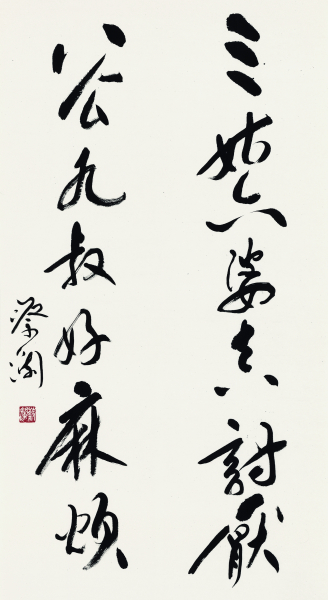 三姑六婆真討厭
八公九叔好麻煩
蔡瀾